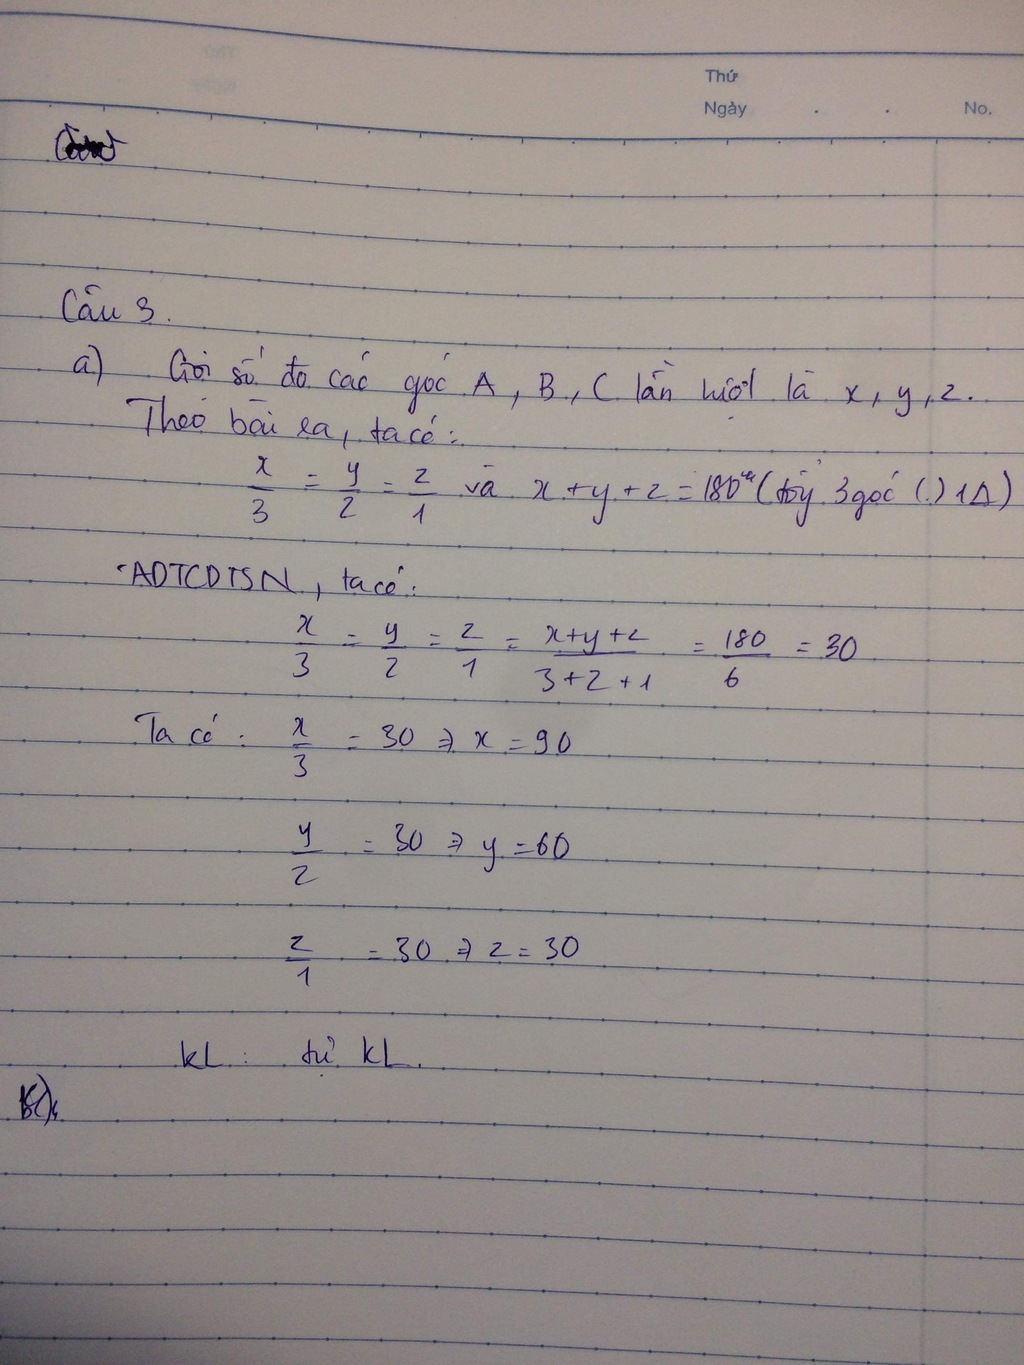 Thứ
Ngày . . No.
Câu 3.
a) Gọi số đo các góc A, B, C lần lượt là x, y, z.
Theo bài ra, ta có:
x/3 = y/2 = z/1 và x + y + z = 180° (tổng 3 góc (.) 1Δ)
ADTCDTSN, ta có:
x/3 = y/2 = z/1 = x+y+z/3+2+1 = 180/6 = 30
Ta có: x/3 = 30 ⇒ x = 90
y/2 = 30 ⇒ y = 60
z/1 = 30 ⇒ z = 30
KL: tự KL.